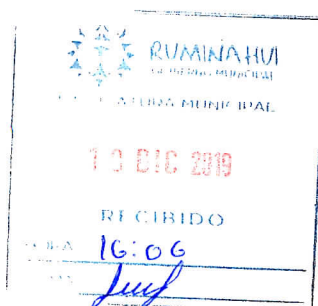 RUMIÑAHUI
GOBIERNO MUNICIPAL
MUNICIPAL
DIC 2019
RECIBIDO
HORA 16:06